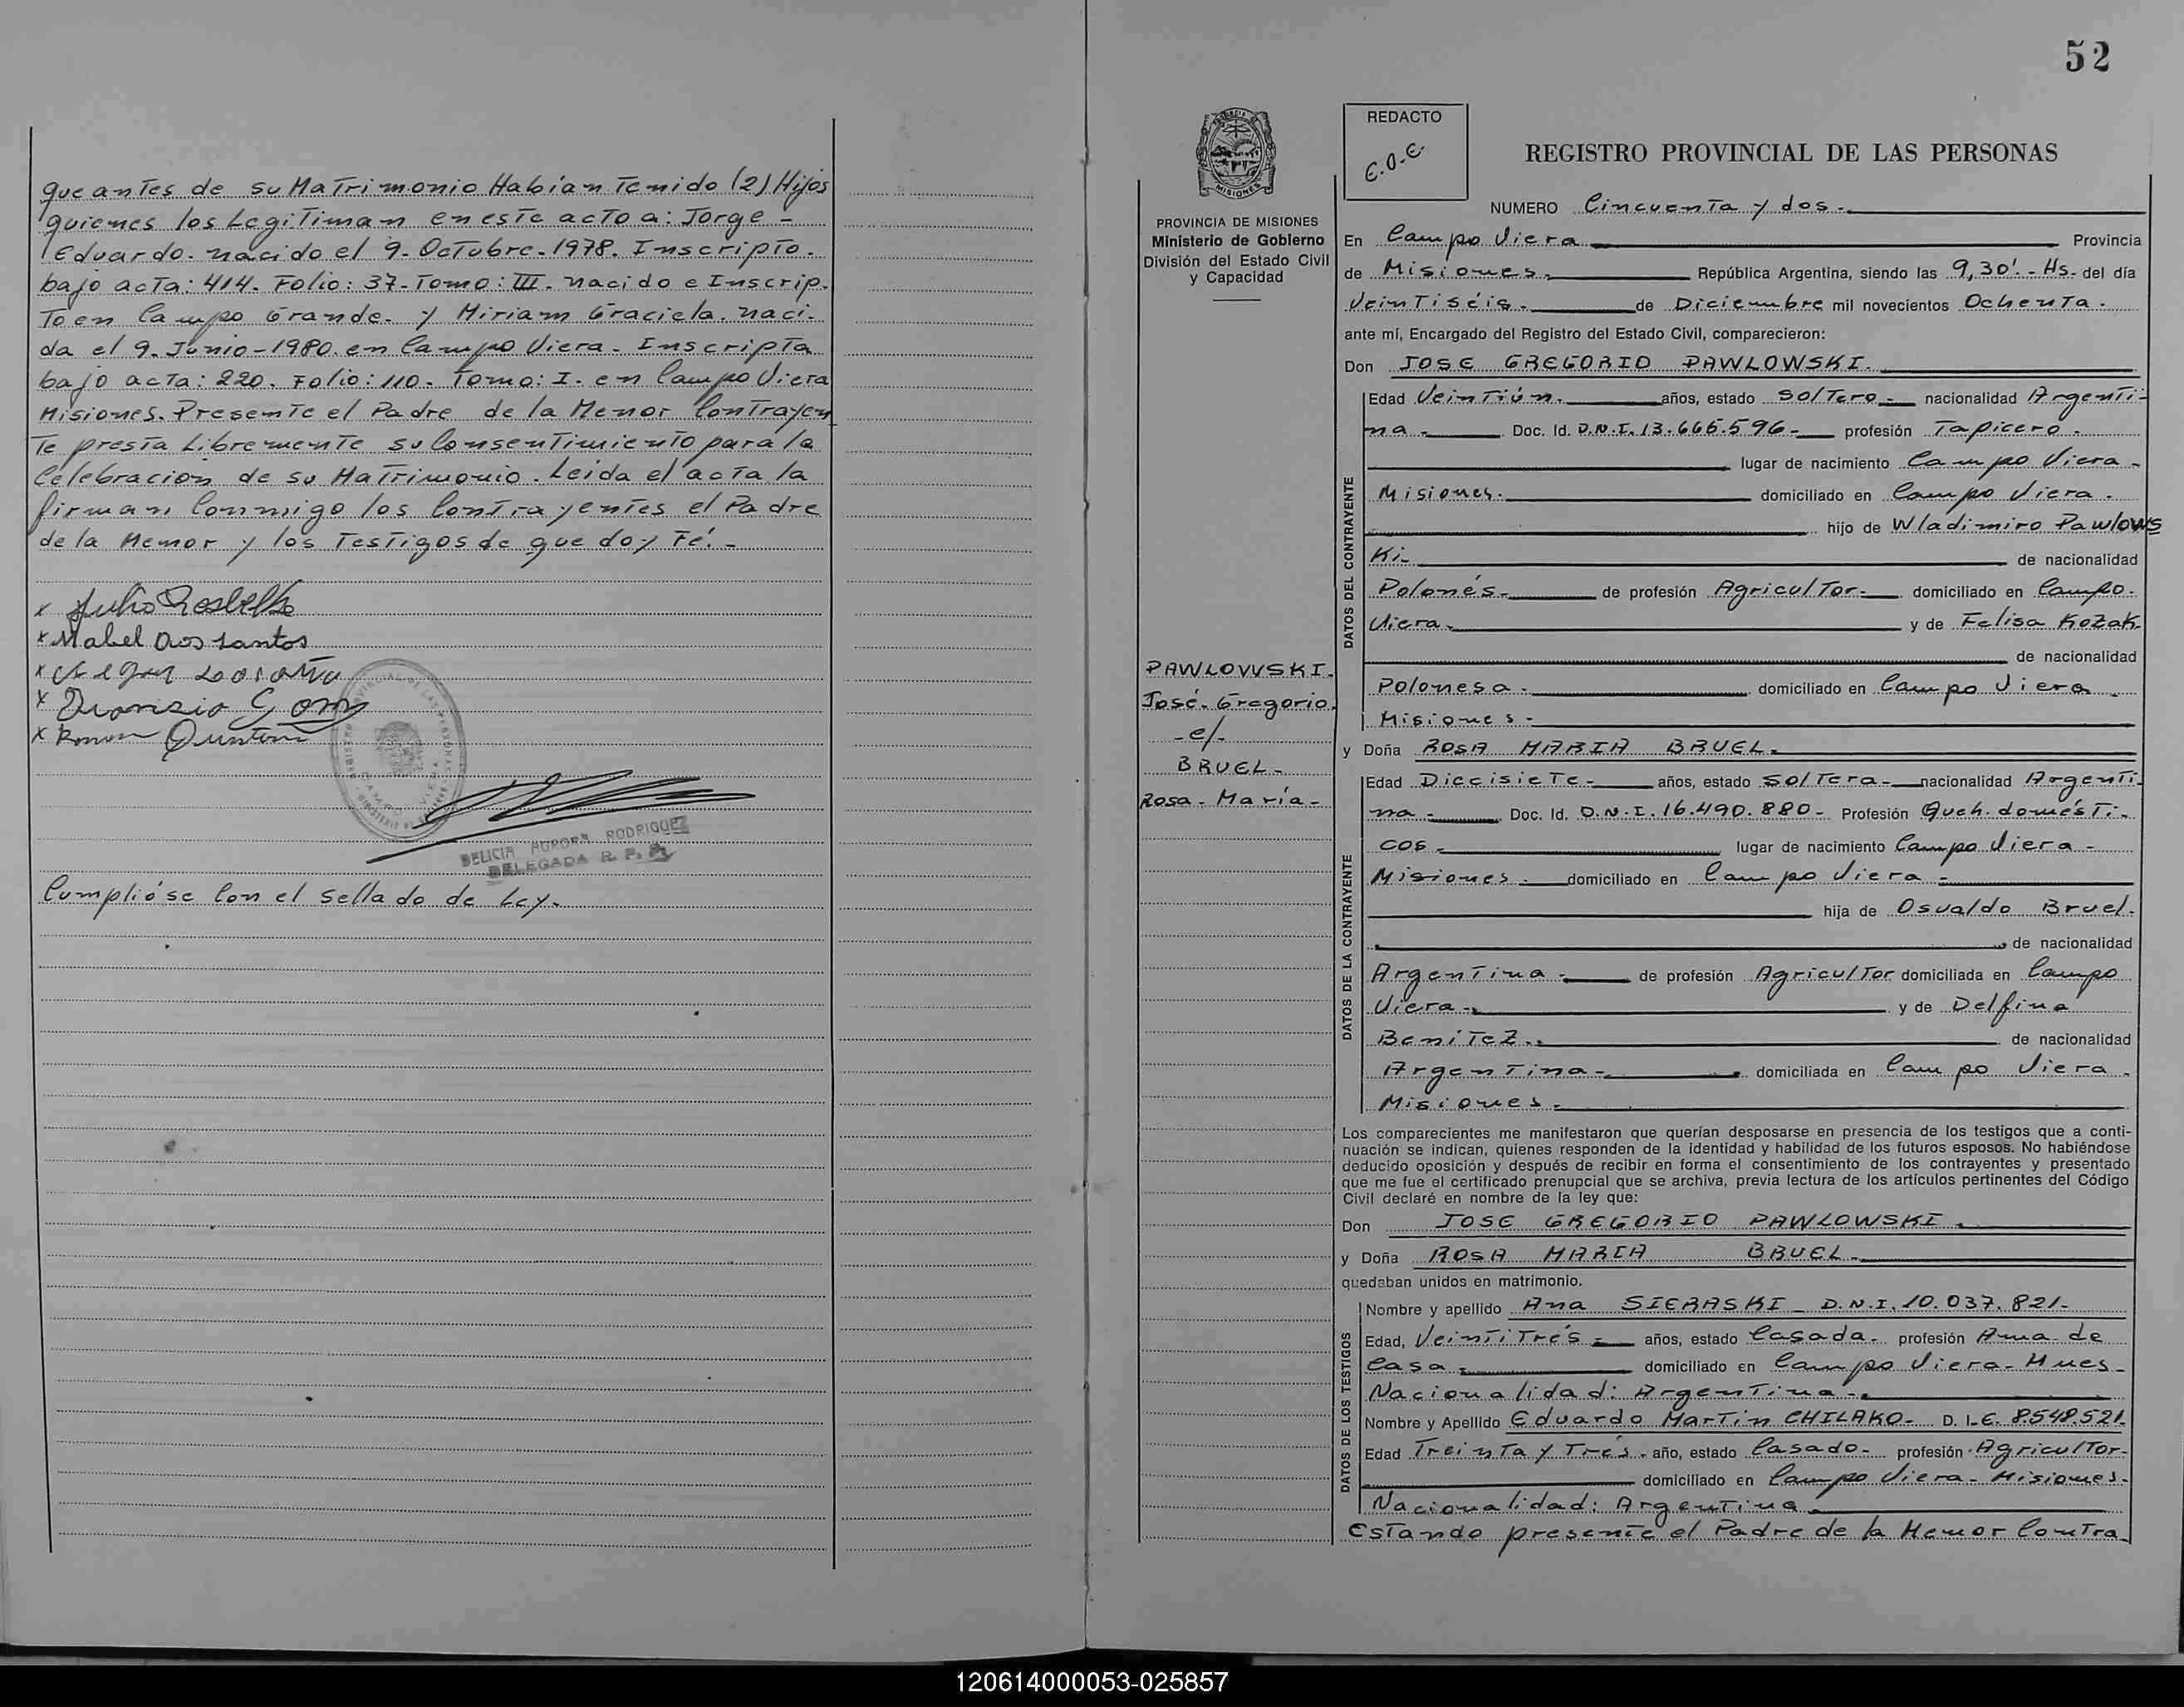 que antes de su Matrimonio Habían Tenido (2) Hijos
quienes los Legitiman en este acto a: Jorge -
Eduardo. nacido el 9. Octubre. 1978. Inscripto.
bajo acta: 414. Folio: 37. Tomo: III. nacido e Inscrip.
To en Campo Grande. y Miriam Graciela. naci.
da el 9. Junio - 1980. en Campo Viera. Inscripta
bajo acta: 220. Folio: 110. Tomo: I. en Campo Viera
Misiones. Presente el Padre de la Menor Contrayen
Te presta Libremente su Consentimiento para la
Celebracion de su Matrimonio. Leida el acta la
firman Conmigo los Contrayentes el Padre
de la Menor y los Testigos de que doy Fé. -
x Julio
x Mabel Dos santos
x
x Dionisio
x Ramon
DELICIA AURORA RODRIGUEZ
DELEGADA R. P. P.
Cumplióse Con el sellado de Ley.
52
REDACTO
E.O.E.
REGISTRO PROVINCIAL DE LAS PERSONAS
PROVINCIA DE MISIONES
Ministerio de Gobierno
División del Estado Civil
y Capacidad
PAWLOWSKI.
José. Gregorio.
- e/-
BRUEL -
Rosa - María -
NUMERO Cincuenta y dos.
En Campo Viera Provincia
de Misiones. República Argentina, siendo las 9,30'. - Hs. del día
Veintiséis. de Diciembre mil novecientos Ochenta.
ante mí, Encargado del Registro del Estado Civil, comparecieron:
Don JOSE GREGORIO PAWLOWSKI.
DATOS DEL CONTRAYENTE
Edad Veintiún. años, estado Soltero - nacionalidad Argenti-
na. Doc. Id. D.N.I. 13.665.596 - profesión Tapicero.
lugar de nacimiento Campo Viera -
Misiones. domiciliado en Campo Viera.
hijo de Wladimiro Pawlows
Ki. de nacionalidad
Polonés. de profesión Agricultor. domiciliado en Campo.
Viera. y de Felisa Kozak.
de nacionalidad
Polonesa. domiciliado en Campo Viera.
Misiones -
y Doña ROSA MARIA BRUEL.
DATOS DE LA CONTRAYENTE
Edad Diecisiete. años, estado Soltera. nacionalidad Argenti.
na. Doc. Id. D.N.I. 16.490.880 - Profesión Queh. domésti-
cos. lugar de nacimiento Campo Viera -
Misiones. domiciliado en Campo Viera -
hija de Osvaldo Bruel.
de nacionalidad
Argentina. de profesión Agricultor domiciliada en Campo
Viera. y de Delfina
Benitez. de nacionalidad
Argentina - domiciliada en Campo Viera.
Misiones.
Los comparecientes me manifestaron que querían desposarse en presencia de los testigos que a conti-
nuación se indican, quienes responden de la identidad y habilidad de los futuros esposos. No habiéndose
deducido oposición y después de recibir en forma el consentimiento de los contrayentes y presentado
que me fue el certificado prenupcial que se archiva, previa lectura de los artículos pertinentes del Código
Civil declaré en nombre de la ley que:
Don JOSE GREGORIO PAWLOWSKI.
y Doña ROSA MARIA BRUEL.
quedaban unidos en matrimonio.
DATOS DE LOS TESTIGOS
Nombre y apellido Ana SIERASKI - D.N.I. 10.037.821-
Edad, Veintitrés - años, estado Casada. profesión Ama de
Casa. domiciliado en Campo Viera - Mnes -
Nacionalidad: Argentina.
Nombre y Apellido Eduardo Martín CHILAKO - D. I.E. 8.548.521-
Edad Treinta y Tres. año, estado Casado - profesión Agricultor -
domiciliado en Campo Viera - Misiones.
Nacionalidad: Argentina.
Estando presente el Padre de la Menor Contra
120614000053-025857